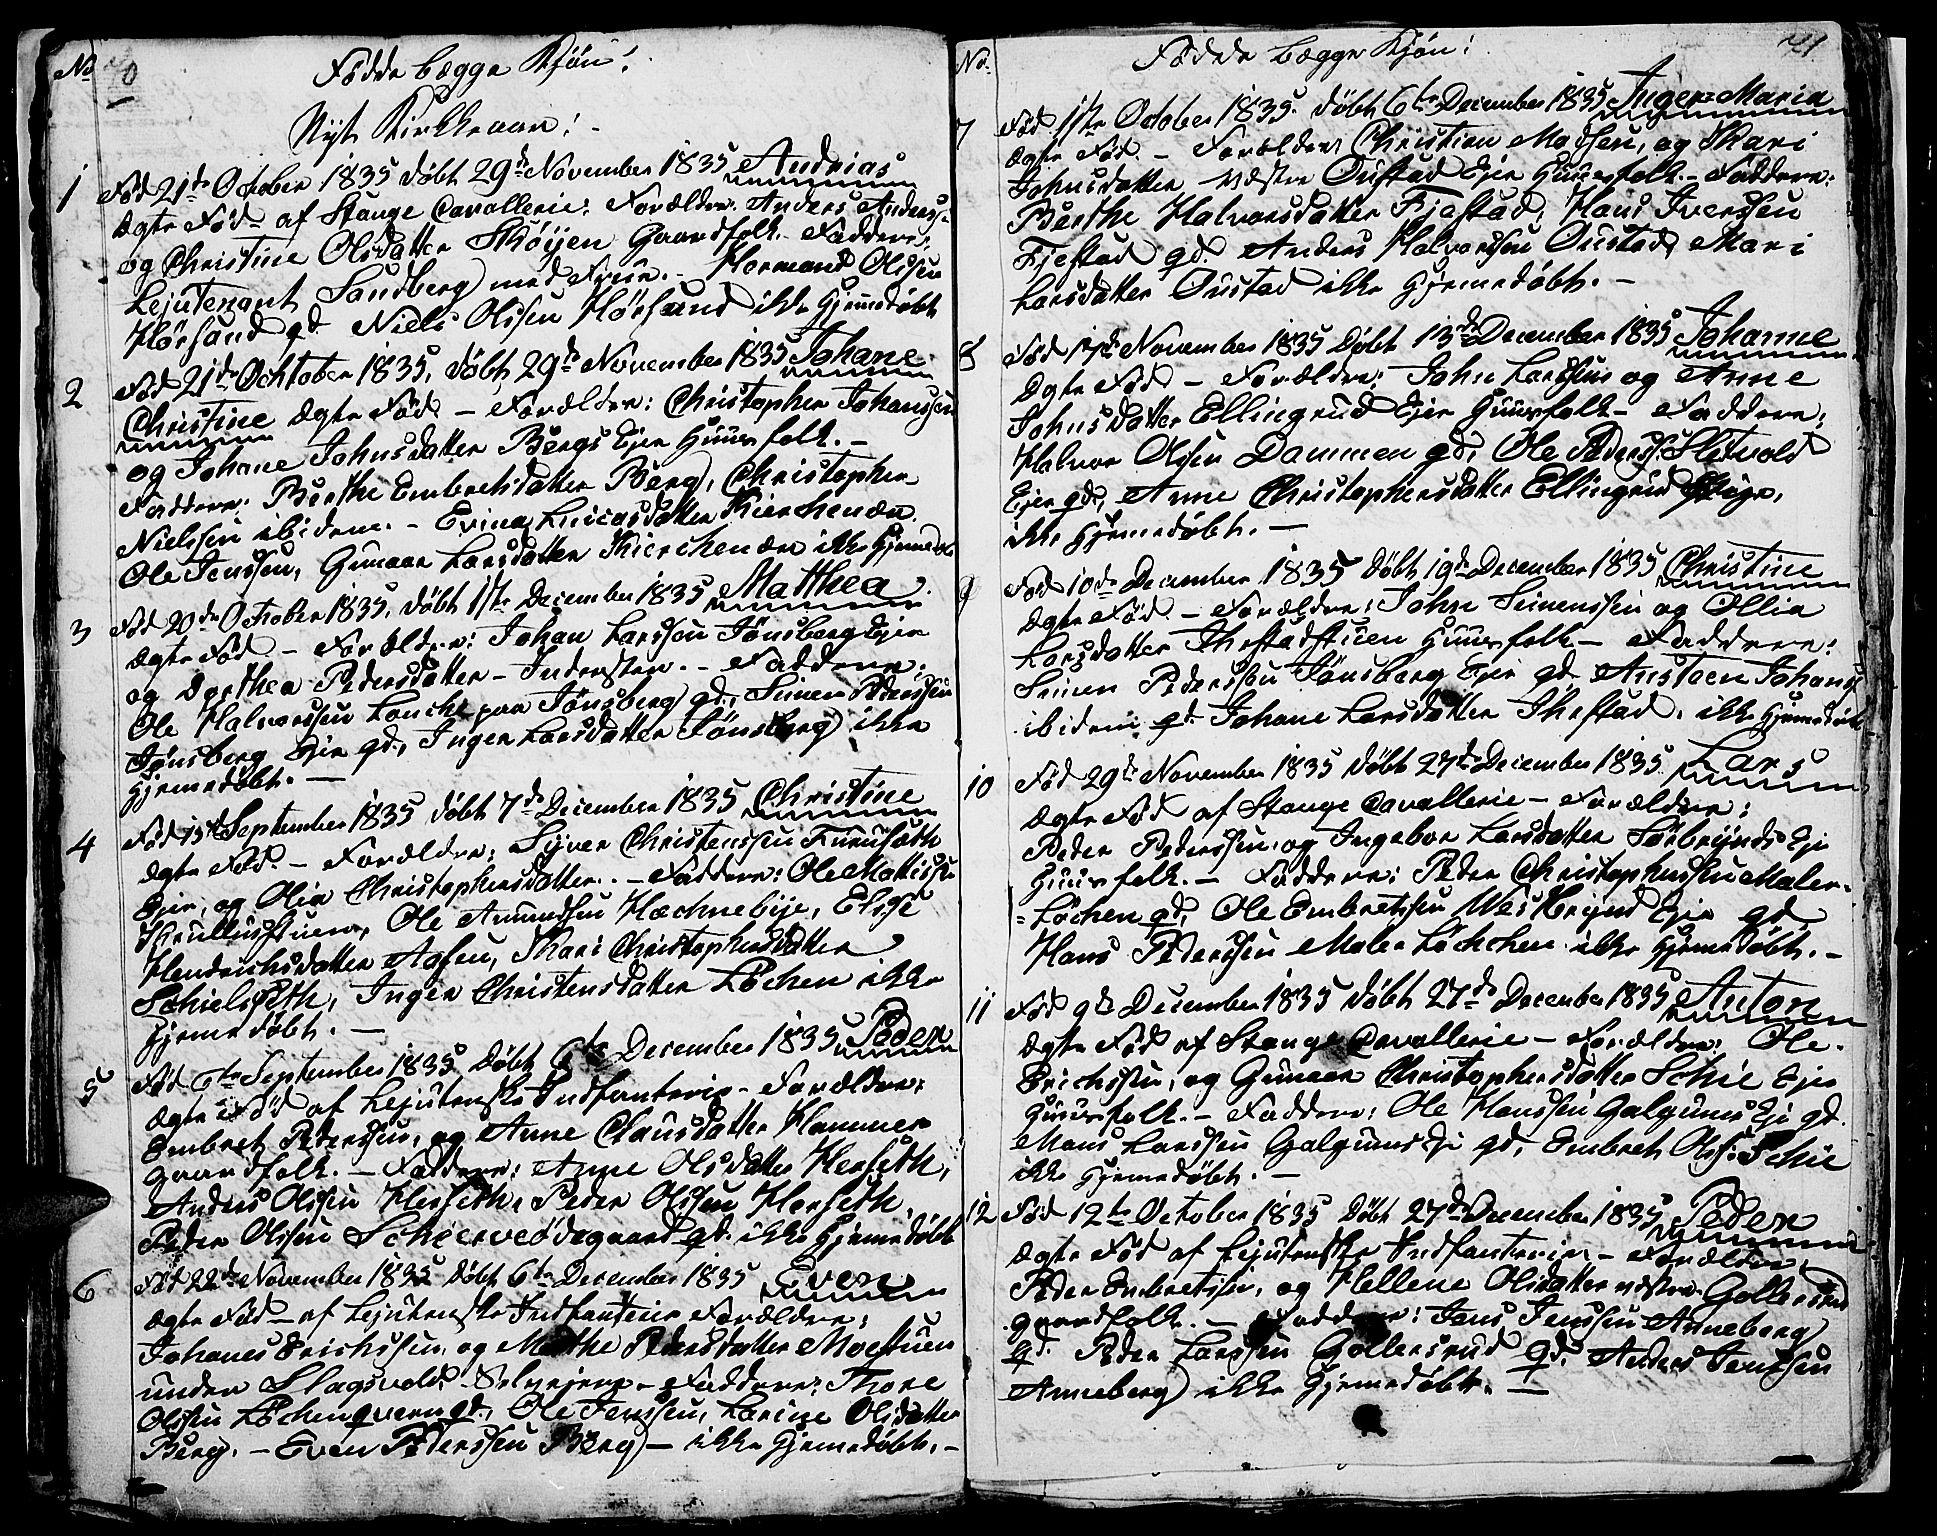 No
Fødde begge Kjøn!
Nyt Kirkeaar!
1 Fød 21de October 1835 døbt 29de November 1835 Andreas
Ægte Fød af Stange Cavallerie: Forældre. Anders Anders-
og Christine Olsdatter Skøyen Gaardfolk. Faddere:
Lejutenant Sandberg med Frue. Hermand Olssen
Hørsand gd. Niels Olssen Hørsand ikke Hjemedøbt
2 Fød 21de Ochtober 1835, døbt 29de November 1835 Johane
Christine Ægte Fød – Forældre: Christopher Johanssen
og Johane Johnsdatter Bergs Ejer Huusfolk. –
Faddere: Berthe Embretsdatter Berg, Christopher
Nielssen ibidem. – Erina Lucasdatter Kierchenær
Ole Jenssen, Gunaar Larsdatter Kierchenær ikke Hjemedøb
3 Fød 20de October 1835, døbt 1ste December 1835 Matthea
Ægte Fød – Forældre: Johan Larssen Jønsberg Ejer
og Dorthea Pedersdatter – Indersten. – Faddere:
Ole Halvorssen Louche paa Jønsberg gd., Simen Pederssen
Jønsberg Ejer gd., Inger Larsdatter Jønsberg ikke
Hjemedøbt. –
4 Fød 13de September 1835 døbt 7de December 1835 Christine
Ægte Fød. – Forældre: Syver Christenssen Furuseth
Ejer, og Olia Christophersdatter. – Faddere: Ole Mattisse
Krullusstuen, Ole Amundsen Hæchnebÿe, Elise
Hendrichsdatter Aasen, Kari Christophersdatter
Schielseth, Inger Christensdatter Løchen ikke
Hjemedøbt. –
5 Fød 6te September 1835 Døbt 6te December 1835 Peder
Ægte Fød af Lejutenske Indfanterie – Forældre:
Embret Pederssen, og Anne Clausdatter Hammer
Gaardfolk. – Faddere: Anne Olsdatter Herseth,
Anders Olssen Herseth, Peder Olssen Herseth,
Peder Olssen Schierveødegaard gd. ikke Hjemedøbt
6 Fød 22de November 1835 Døbt 6te December 1835 Even
Ægte Fød – af Lejutenske Indfanterie Forældre:
Johanes Erichssen, og Marthe Pedersdatter Moestuen
under Slagsvold Selvejere – Faddere: Thore
Olssen Løchenqvern gd., Ole Jenssen, Larine Olsdatter
Berg. – Even Pederssen Berg – ikke Hjemedøbt. –
No.
Fødde begge Kjøn!
71
7 Fød 1ste October 1835. døbt 6te December 1835 Inger Maria
Ægte Fød. – Forældre Christian Madsen, og Kari
Johnsdatter Væstre Oustad Ejer Huusfolk. – Faddere:
Berthe Halvorsdatter Fjestad, Hans Iverssen
Fjestad gd. Anders Halvorssen Oustad, Mari
Larsdatter Oustad ikke Hjemedøbt. –
8 Fød 17de November 1835 Døbt 13de December 1835 Johanne
Ægte Fød – Forældre: John Larssen og Anne
Johnsdatter Ellingrud Ejer Huusfolk – Faddere:
Halvor Olssen Dammen gd., Ole Pederss. Sletvold
Ejer gd., Anne Christophersdatter Ellingrud Pige,
ikke Hjemedøbt. –
9 Fød 10de December 1835 Døbt 19de December 1835 Christine
Ægte Fød – Forældre: John Simenssen og Ollia
Larsdatter Thestadstuen Huusfolk – Faddere:
Simen Pederssen Jønsberg Ejer gd. Austeen Johans
ibidem gd. Johane Larsdatter Thestad. ikke Hjemedøbt
10 Fød 29de November 1835 Døbt 27de December 1835. Lars
Ægte Fød af Stange Cavallerie – Forældre:
Peder Pederssen, og Ingebor Larsdatter Sørbrÿnds Eje
Huusfolk. – Faddere: Peder Christopherssen Maler-
=Løchen gd, Ole Embretssen Westbrynd Ejer gd
Hans Pederssen Maler Løchchen ikke Hjemedøbt. –
11 Fød 9de December 1835 Døbt 27de December 1835 Anton
Ægte Fød af Stange Cavallerie – Forældre: Ole
Erichssen, og Gunaar Christophersdatter Schie Ejer
Huusfolk. – Faddere: Ole Hanssen Galgums Eje gd.
Mons Larssen Galgums Eje gd, Embret Olss. Schie
ikke Hjemedøbt. –
12 Fød 12te October 1835 Døbt 27de December 1835 Peder
Ægte Fød af Lejutenske Indfanterie – Forældre
Peder Embretssen, og Hellene Olsdatter nedre Gollersrud
gaardfolk. – Faddere: Jens Jenssen Anneberg
gd. Peder Larssen Gollersrud gd. Anders Jenssen
Anneberg ikke Hjemedøbt. –